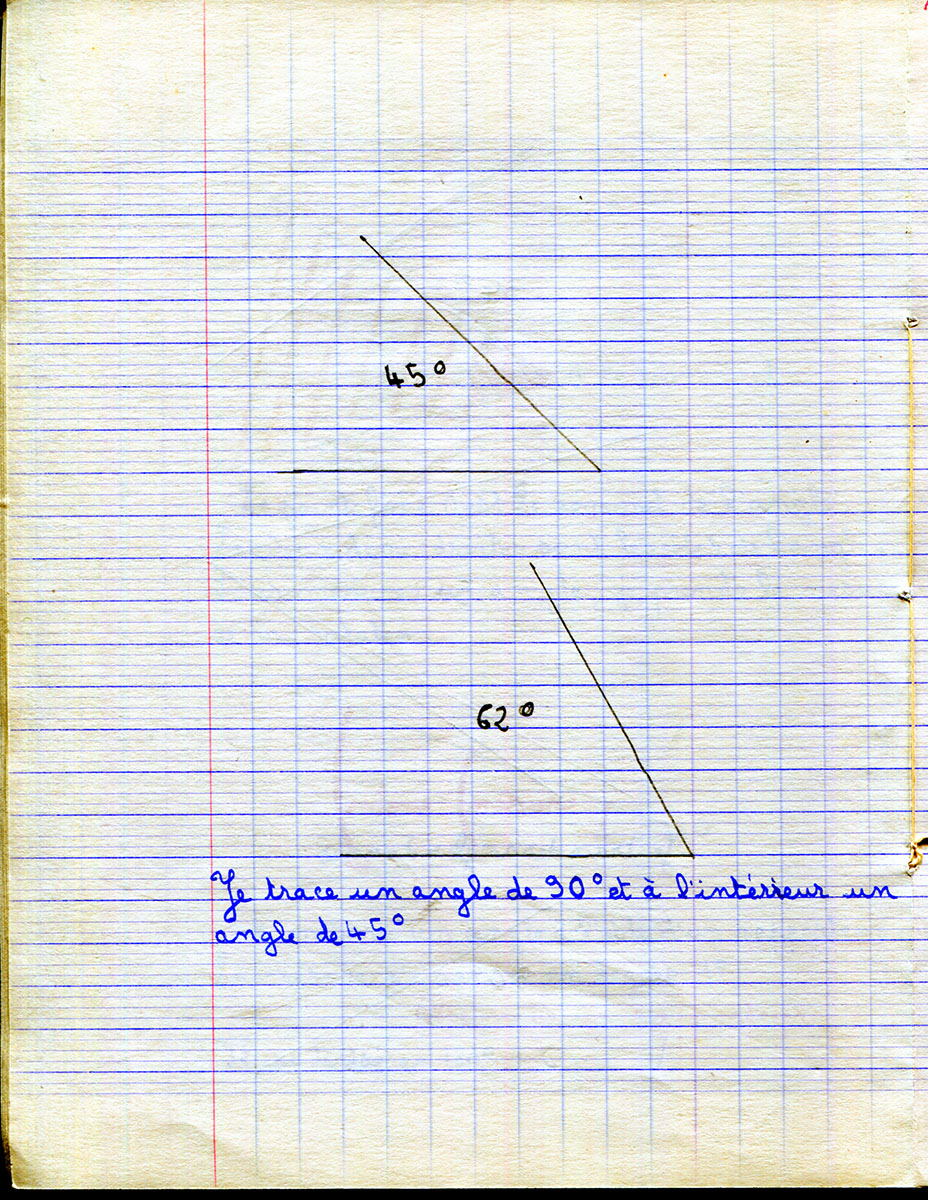 45°
62°
Je trace un angle de 90° et à l'intérieur un
angle de 45°